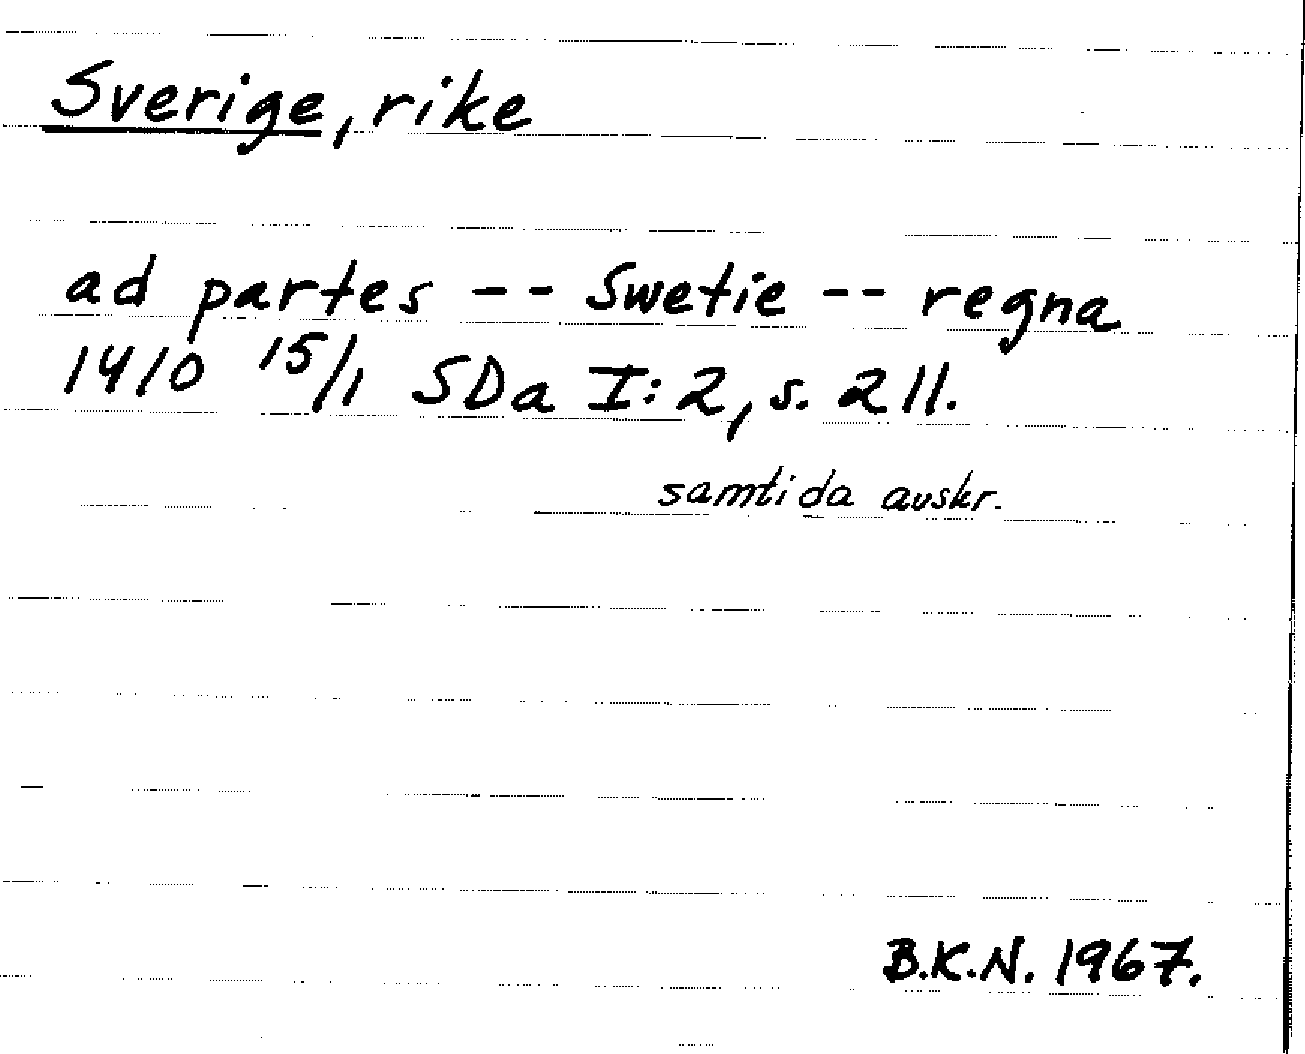 Sverige, rike
ad partes -- Swetie -- regna
1410 15/1 SDa I:2, s. 211.
samtida avskr.
B.K.N. 1967.